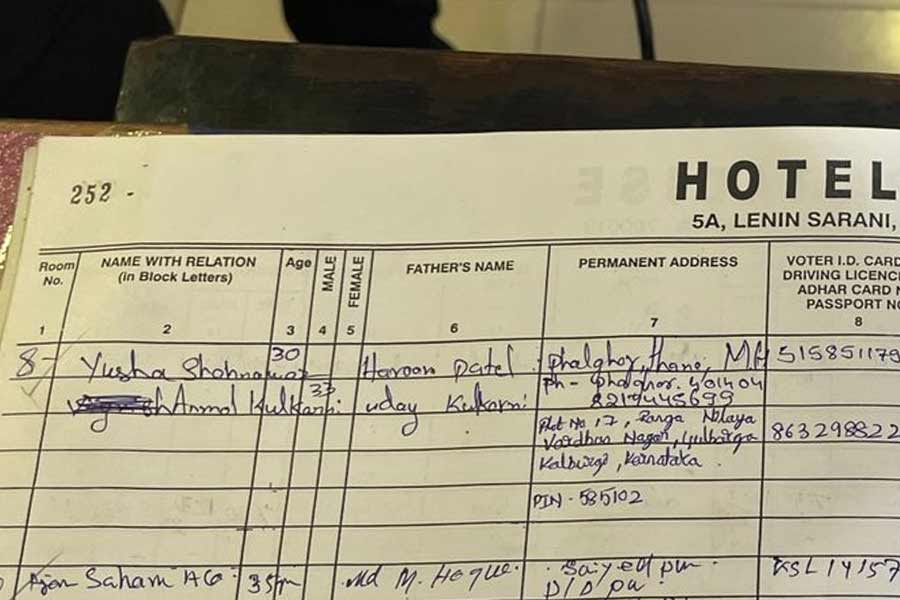 252 -
HOTEL
5A, LENIN SARANI,
Room No. NAME WITH RELATION (in Block Letters) Age MALE FEMALE FATHER'S NAME PERMANENT ADDRESS VOTER I.D. CARD
DRIVING LICENC
ADHAR CARD N
PASSPORT NO
1 2 3 4 5 6 7 8
8 - Yusha 30 Haroon Patel Phalghor, Thane, MH 515851179
Ph - Phalghor. 401404
Anmol Kulkarni 33 uday Kulkarni 8219445699
Plot No 17, Ranga Nilaya 863298822
Vardhan Nagar, Gulbarga
Kalburgi, Karnataka.
PIN - 585102
Saham 35 Md M. Hoque. Saiyedpur KSL14157